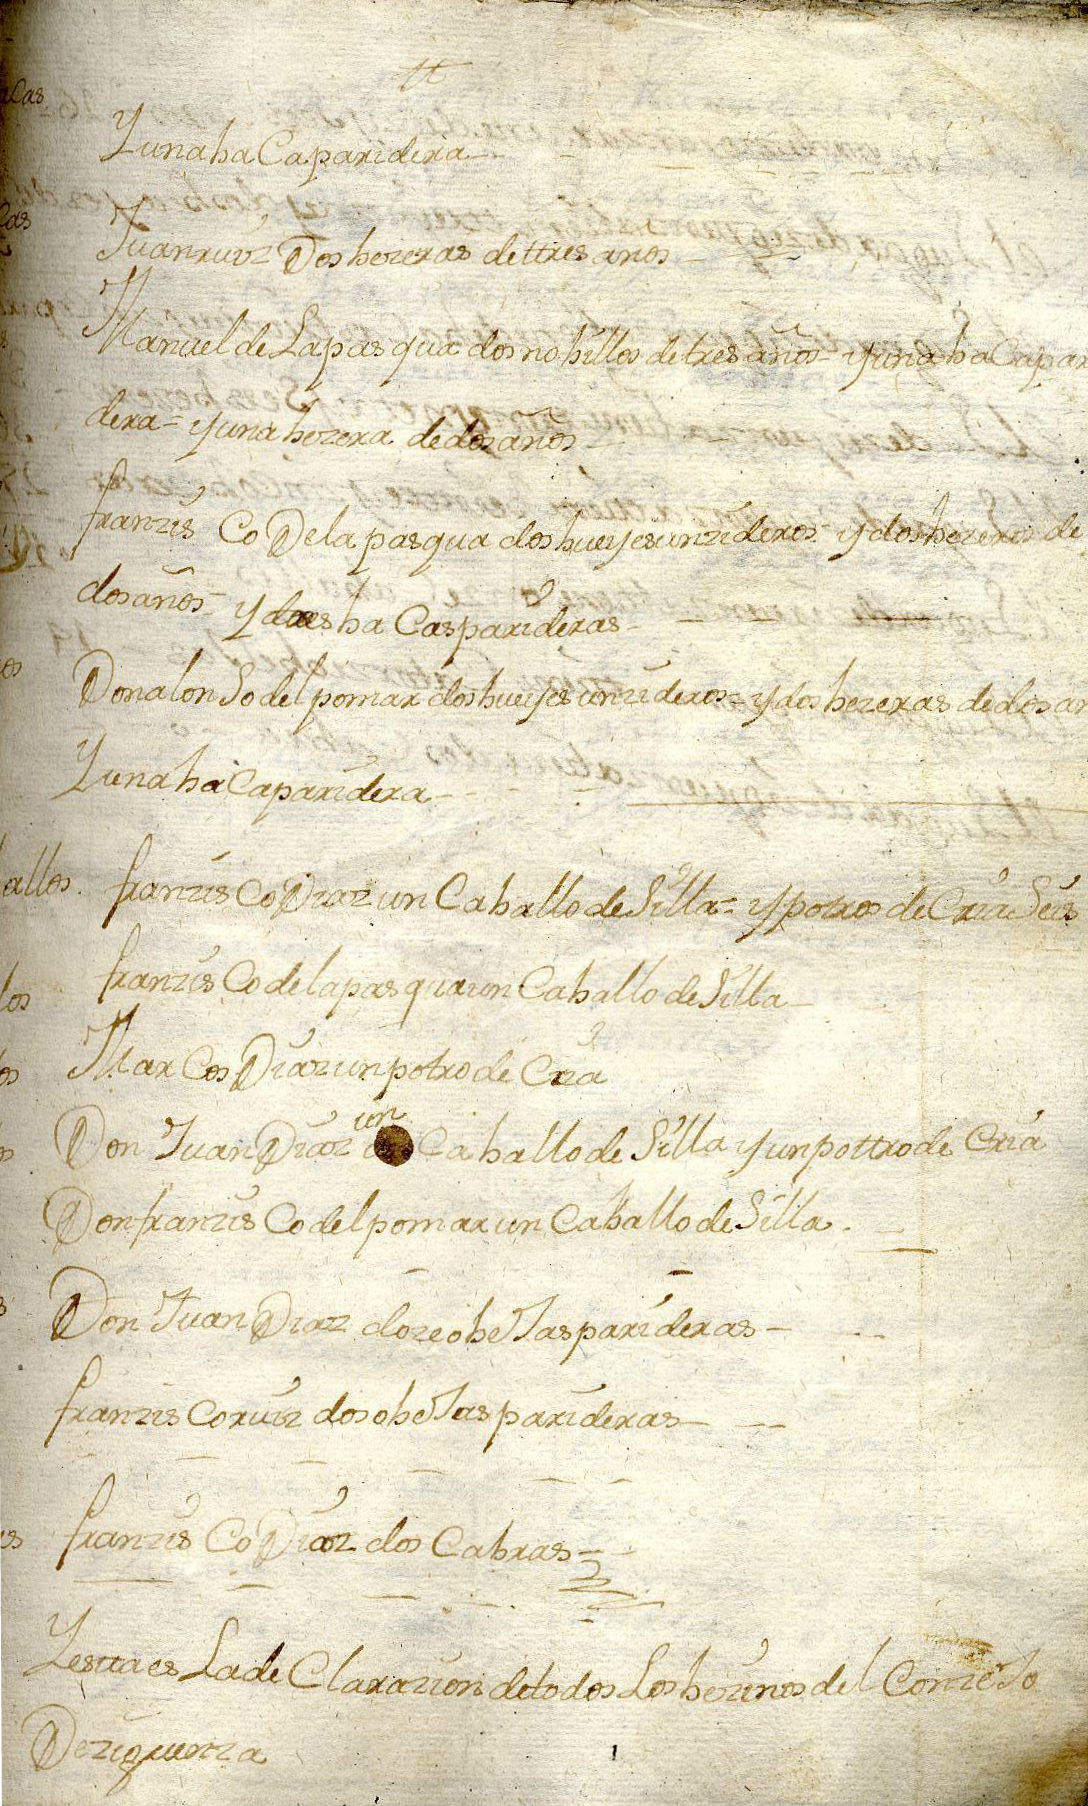 tt
Y una baCa paridera
Juan ruiz Dos bezeras de ttres anos
Manuel de La pasqua dos nobillos de tres años = y una baCa pari
dera = y una bezera de dos años
franzisCo De la pasqua dos bueyes unzideros = y dos bezeros de
dos años = y dos baCas parideras
Don alonso del pomar dos bueyes unzideros = y dos bezeras de dos an
Y una baCa paridera
franzisCo Diaz un Caballo de Silla = y potros de Cria Seis
franzisCo de la pasqua un Caballo de Silla
MarCos Diaz un potro de Cria
Don Juan Diaz un Caballo de Silla y un pottro de Cria
Don franzisCo del pomar un Caballo de Silla
Don Juan Diaz doze obeJas parideras
franzisCo ruiz dos obeJas parideras
franzisCo Diaz dos Cabras
Y esta es La deClarazion de todos Los bezinos del ConzeJo
De ziguenza
aCas
Cas
allos
los
os
es